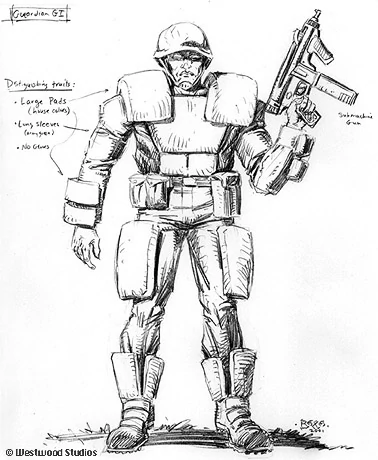 Guardian GI
Distiguishing traits:
• Large Pads
(house colors)
• Long sleeves
(army green)
• No Gloves
Submachine
Gun
2001
© Westwood Studios